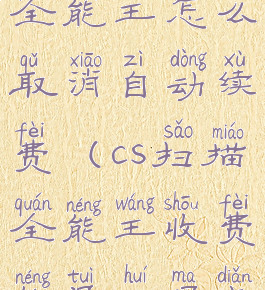 全能王怎么
qǔ xiāo zì dòng xù
取消自动续
fèi sǎo miáo
费（CS扫描
quán néng wáng shōu fèi
全能王收费
néng tuì huí ma diǎn